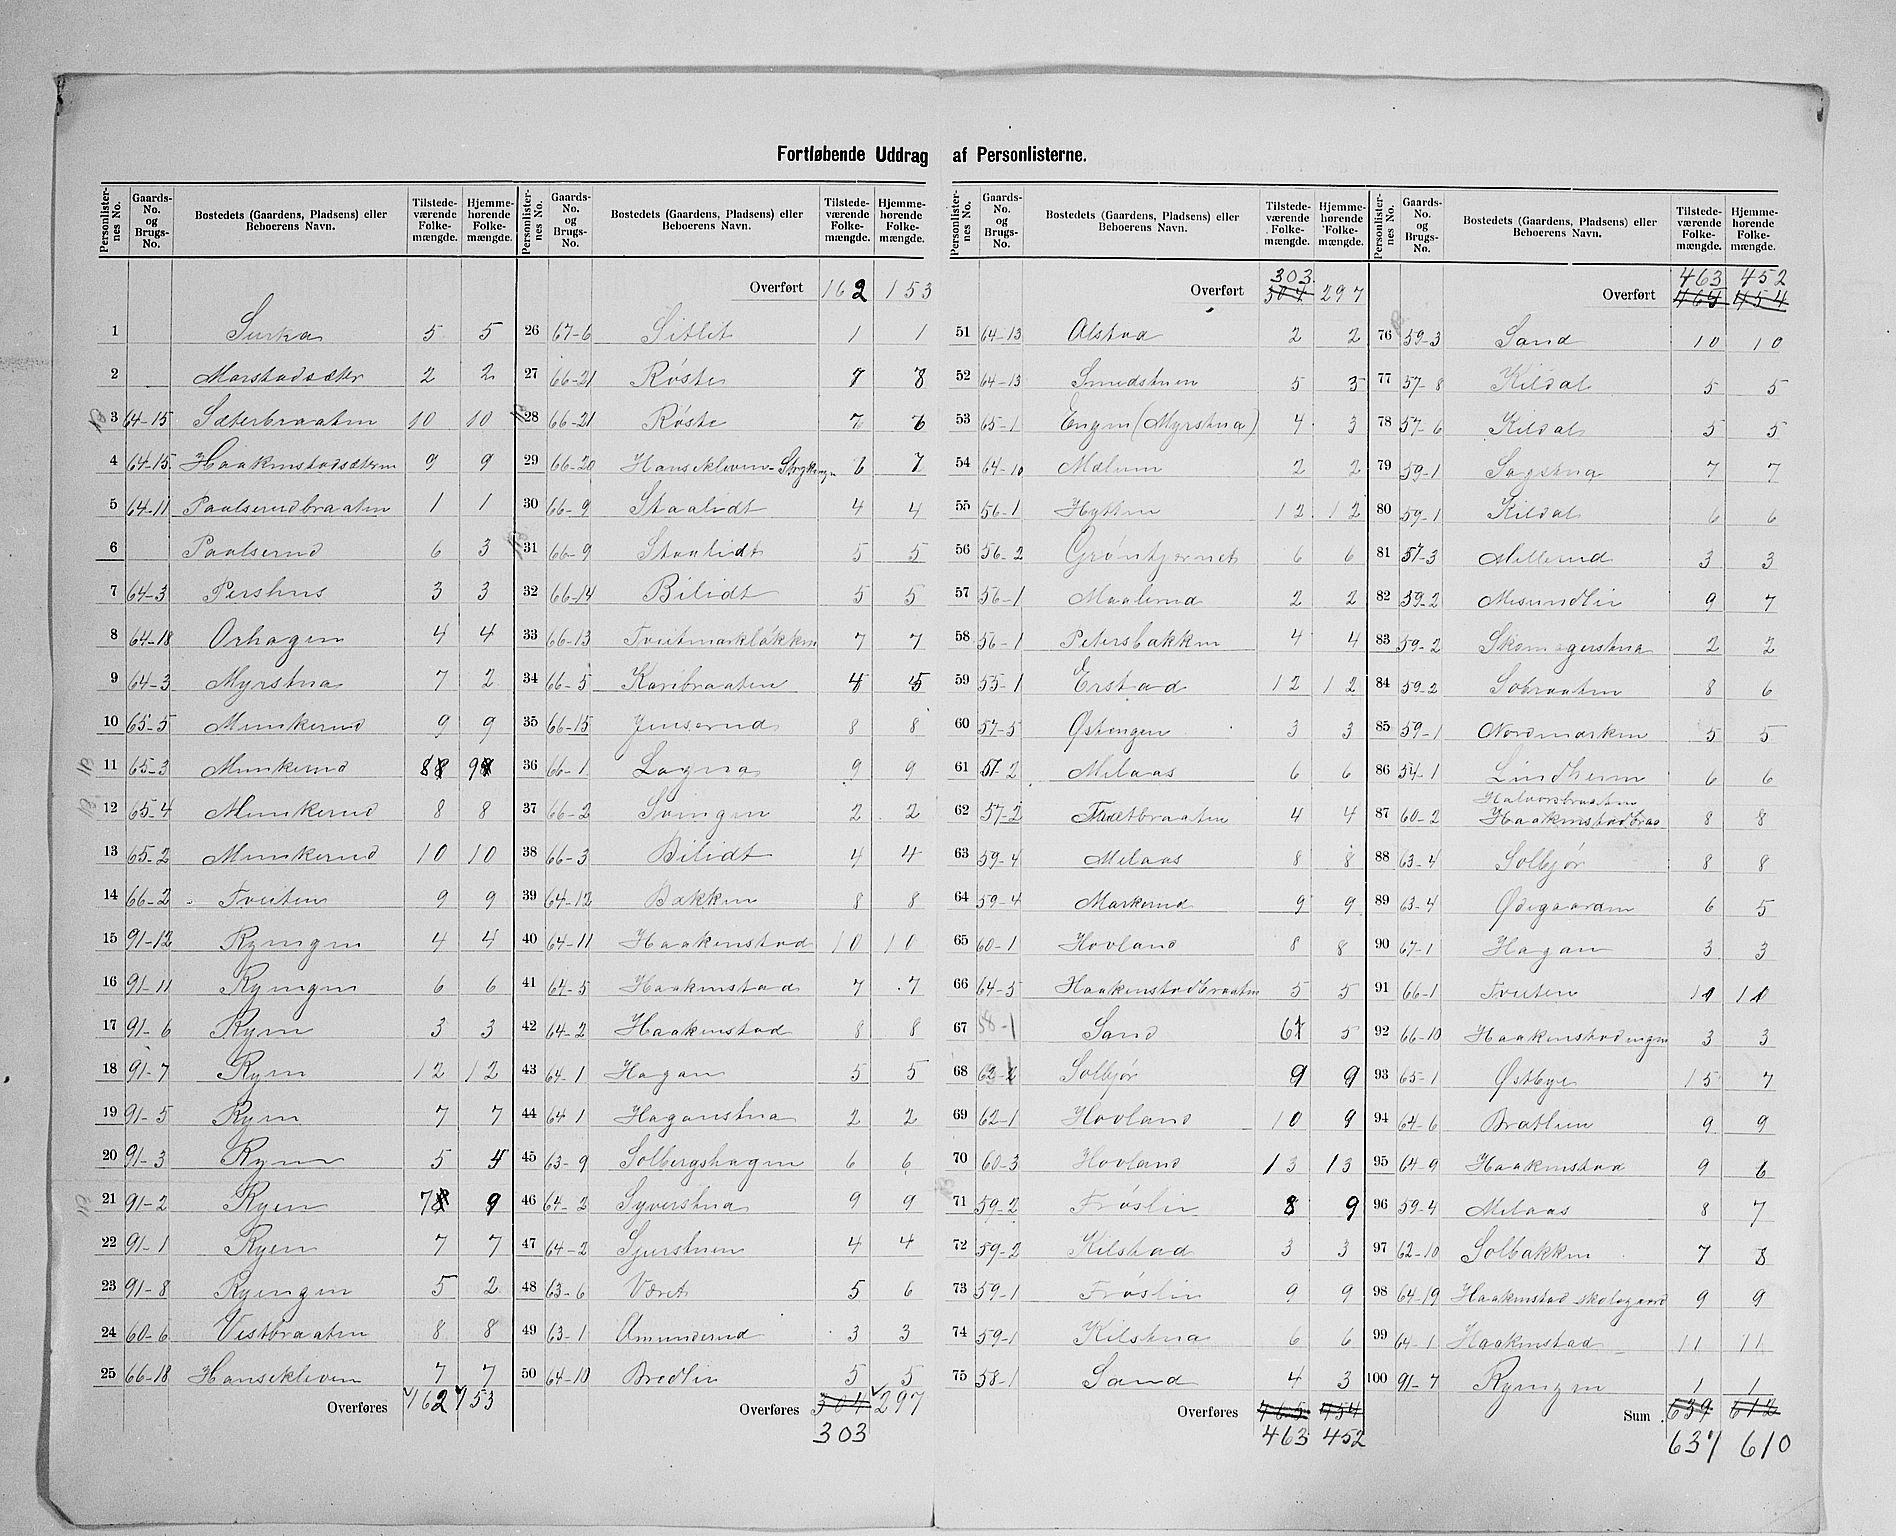 Fortløbende Uddrag af Personlisterne.
Personlisternes No. | Gaards-No. og Brugs-No. | Bostedets (Gaardens, Pladsens) eller Beboerens Navn. | Tilstedeværende Folkemængde. | Hjemmehørende Folkemængde.
1 Surka 5 5
2 Morstadsæter 2 2
3 64-15 Sæterbraaten 10 10
4 64-15 Haakenstadsæteren 9 9
5 64-11 Paalserudbraaten 1 1
6 Paalserud 6 3
7 64-3 Pershus 3 3
8 64-18 Orhagen 4 4
9 64-3 Myrstua 7 2
10 65-5 Munkerud 9 9
11 65-3 Munkerud 8 9
12 65-4 Munkerud 8 8
13 65-2 Munkerud 10 10
14 66-2 Tveiten 9 9
15 91-12 Ryengen 4 4
16 91-11 Ryengen 6 6
17 91-6 Ryen 3 3
18 91-7 Ryen 12 12
19 91-5 Ryen 7 7
20 91-3 Ryen 5 4
21 91-2 Ryen 7 9
22 91-1 Ryen 7 7
23 91-8 Ryengen 5 2
24 60-6 Vestbraaten 8 8
25 66-18 Hansekleven 7 7
Overføres 162 153
Personlisternes No. | Gaards-No. og Brugs-No. | Bostedets (Gaardens, Pladsens) eller Beboerens Navn. | Tilstedeværende Folkemængde. | Hjemmehørende Folkemængde.
Overført 162 153
26 67-6 Sitlit 1 1
27 66-21 Røste 7 8
28 66-21 Røste 7 6
29 66-20 Hansekleven- 6 7
30 66-9 Staalidt 4 4
31 66-9 Staalidt 5 5
32 66-14 Bilidt 5 5
33 66-13 Tveitmarkløkken 7 7
34 66-5 Karibraaten 4 5
35 66-15 Jenserud 8 8
36 66-1 Lagna 9 9
37 66-2 Svingen 2 2
38 66-3 Bilidt 4 4
39 64-12 Bakken 8 8
40 64-11 Haakenstad 10 10
41 64-5 Haakenstad 7 7
42 64-2 Haakenstad 8 8
43 64-1 Hagan 5 5
44 64 1 Haganstua 2 2
45 63-9 Solbergshagen 6 6
46 64-2 Syverstua 9 9
47 64-2 Sjurstuen 4 4
48 63-6 Været 5 6
49 63-1 Amunderud 3 3
50 64-10 Bredlie 5 5
Overføres 304 297
303
Personlisternes No. | Gaards-No. og Brugs-No. | Bostedets (Gaardens, Pladsens) eller Beboerens Navn. | Tilstedeværende Folkemængde. | Hjemmehørende Folkemængde.
303
Overført 304 297
51 64-13 Alstad 2 2
52 64-13 Smedstuen 5 3
53 65-1 Engen (Myrstua) 4 3
54 64-10 Mælum 2 2
55 56-1 Hytten 12 12
56 56-2 Grøntjernet 6 6
57 56-1 Maalerud 2 2
58 56-1 Petersbakken 4 4
59 55-1 Erstad 12 12
60 57-5 Østengen 3 3
61 57-2 Melaas 6 6
62 57-2 4 4
63 59-4 Melaas 8 8
64 59-4 Markerud 9 9
65 60-1 Hovland 8 8
66 64-5 Haakenstadbraaten 5 5
67 58-1 Sand 6 5
68 62-2 Solbjør 9 9
69 62-1 Hovland 10 9
70 60-3 Hovland 13 13
71 59-2 Frøslie 8 9
72 59-2 Kilstad 3 3
73 59-1 Frøslie 9 9
74 59-1 Kilstua 6 6
75 58-1 Sand 4 3
Overføres 465 454
463 452
Personlisternes No. | Gaards-No. og Brugs-No. | Bostedets (Gaardens, Pladsens) eller Beboerens Navn. | Tilstedeværende Folkemængde. | Hjemmehørende Folkemængde.
463 452
Overført 464 454
76 59-3 Sand 10 10
77 57-8 Kildal 5 5
78 57-6 Kildal 5 5
79 59-1 Sagstua 7 7
80 59-1 Kildal 6 6
81 57-3 Mellerud 3 3
82 59-2 Mesundlie 9 7
83 59-2 Skomagerstua 2 2
84 59-2 Sobraaten 8 6
85 59-1 Nordmarken 5 5
86 54-1 Lindheim 6 6
Halvorsbraaten
87 60-2 Haakenstadbraa 8 8
88 63-4 Solbjør 8 8
89 63-4 Ødegaarden 6 5
90 67-1 Hagan 3 3
91 66-1 Tveiten 11 10
92 66-10 Haakenstadengen 3 3
93 65-1 Østbye 15 7
94 64-6 Bratlien 9 9
95 64-9 Haakenstad 9 6
96 59-4 Melaas 8 7
97 62-10 Solbakken 7 8
98 64-19 Haakenstad skolegaard 9 9
99 64-1 Haakenstad 11 11
100 91-7 Ryengen 1 1
Sum 639 612
637 610